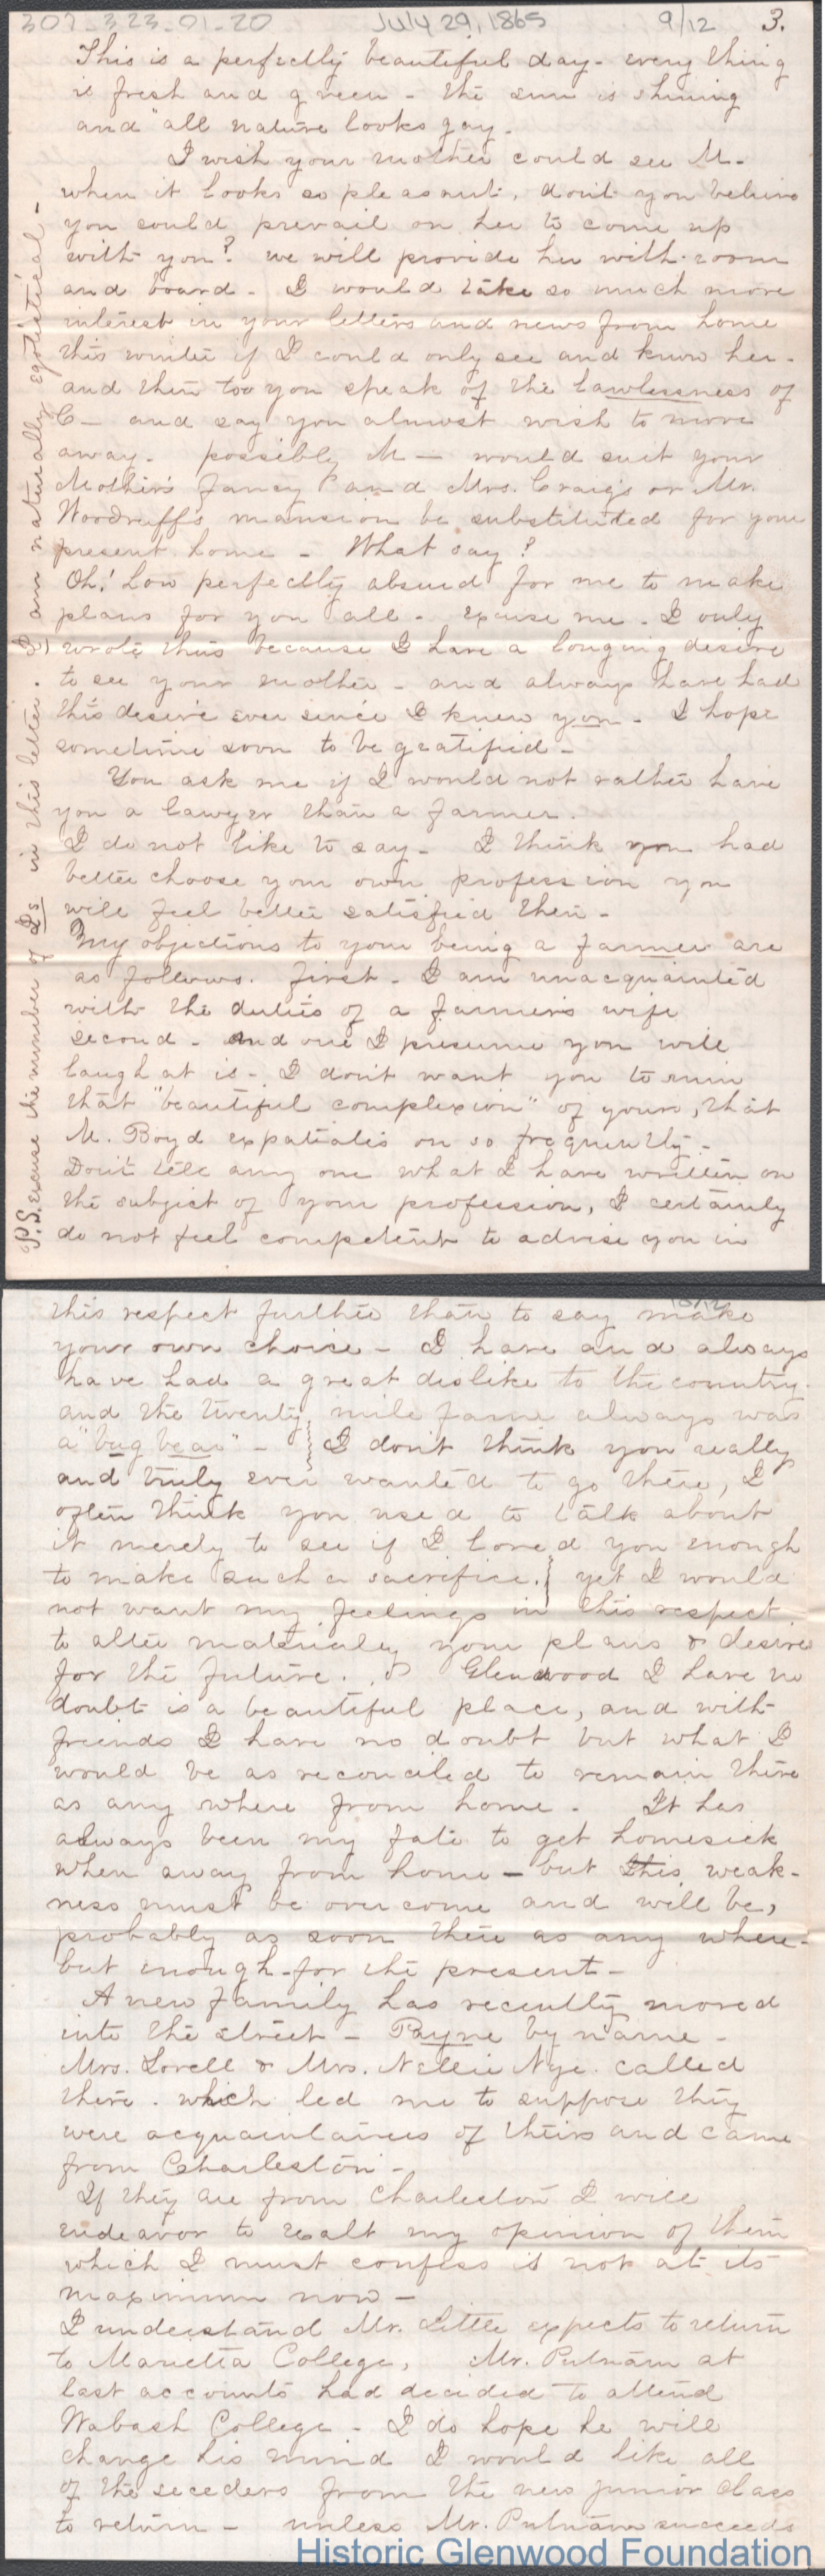 307-323-01-20 July 29, 1865 9/12 3.
This is a perfectly beautiful day - every thing
is fresh and green - the sun is shining
and "all nature looks gay.
I wish your mother could see M-
when it looks so pleasant, don't you believe
you could prevail on her to come up
with you? we will provide her with room
and board - I would take so much more
interest in your letters and news from home
this winter if I could only see and know her -
and then too you speak of the lawlessness of
C- and say you almost wish to move
away - possibly M- would suit your
Mother's fancy & and Mrs. Craig's or Mr.
Woodruff's mansion be substituted for your
present home - What say?
Oh! how perfectly absurd for me to make
plans for you all - excuse me - I only
wrote this because I have a longing desire
to see your mother - and always have had
this desire ever since I knew you - I hope
sometime soon to be gratified -
You ask me if I would not rather have
you a lawyer than a farmer.
I do not like to say - I think you had
better choose your own profession you
will feel better satisfied then -
My objections to your being a farmer are
as follows. first - I am unacquainted
with the duties of a farmer's wife
second - and one I presume you will
laugh at is - I don't want you to ruin
that "beautiful complexion" of yours, that
M. Boyd expatiates on so frequently -
Don't tell any one what I have written on
the subject of your profession, I certainly
do not feel competent to advise you in
P.S. excuse the number of Is in this letter. I am naturally egotistical -
10/12
this respect further than to say make
your own choice - I have and always
have had a great dislike to the country.
and the twenty mile farm always was
a "bug bear" - I don't think you really
and truly ever wanted to go there, I
often think you used to talk about
it merely to see if I loved you enough
to make such a sacrifice. yet I would
not want my feelings in this respect
to alter materialy your plans & desires
for the future. Glenwood I have no
doubt is a beautiful place, and with
friends I have no doubt but what I
would be as reconciled to remain there
as any where from home - It has
always been my fate to get homesick
when away from home - but this weak-
ness must be overcome and will be,
probably as soon there as any where -
but enough for the present -
A new family has recently moved
into the street - Payne by name -
Mrs. Lovell & Mrs. Nellie Nye called
there. which led me to suppose they
were acquaintances of theirs and came
from Charleston -
If they are from Charleston I will
endeavor to exalt my opinion of them
which I must confess is not at its
maximum now -
I understand Mr. Little expects to return
to Marietta College, Mr. Putnam at
last accounts had decided to attend
Wabash College - I do hope he will
change his mind I would like all
of the seceders from the new junior class
to return - unless Mr. Putnam succeeds
Historic Glenwood Foundation